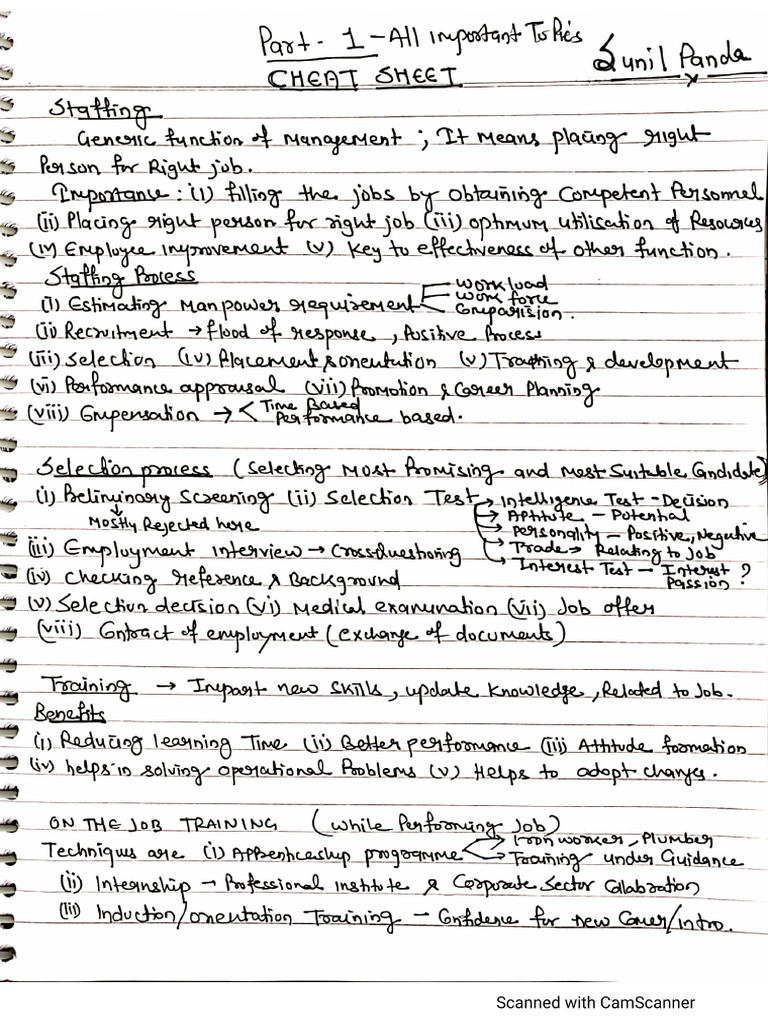 Part - 1 - All Important Topics
Sunil Panda
CHEAT SHEET
Staffing
Generic function of Management ; It means placing right
Person for Right job.
Importance : (i) filling the jobs by obtaining Competent Personnel
(ii) Placing right person for right job (iii) optimum utilisation of Resources
(iv) Employee improvement (v) Key to effectiveness of other function.
Staffing Process
(i) Estimating Manpower requirement
work load
work force
Comparision.
(ii) Recruitment → flood of response, Positive Process
(iii) Selection (iv) Placement & orientation (v) Training & development
(vi) Performance appraisal (vii) Promotion & Career Planning
(viii) Compensation → < Time Based
Performance based.
Selection process (Selecting Most Promising and most Suitable Candidate)
(i) Preliminary Screening (ii) Selection Test → Intelligence Test - Decision
↓
Mostly Rejected here
→ Aptitute - Potential
→ Personality - Positive, Negative
→ Trade → Relating to Job
→ Interest Test - Interest ?
Passion
(iii) Employment interview → Cross questioning
(iv) Checking reference & Background
(v) Selection decision (vi) Medical examination (vii) Job offer
(viii) Contract of employment (exchange of documents)
Training → Impart new skills, update knowledge, Related to Job.
Benefits
(i) Reducing learning Time (ii) Better performance (iii) Attitude formation
(iv) helps in solving operational Problems (v) Helps to adopt changes.
ON THE JOB TRAINING (while Performing Job)
Techniques are (i) Apprenticeship programme
→ Iron worker, Plumber
→ Training under Guidance
(ii) Internship - Professional Institute & Corporate Sector Collabration
(iii) Induction/orientation Training - Confidence for new Comer/intro.
Scanned with CamScanner